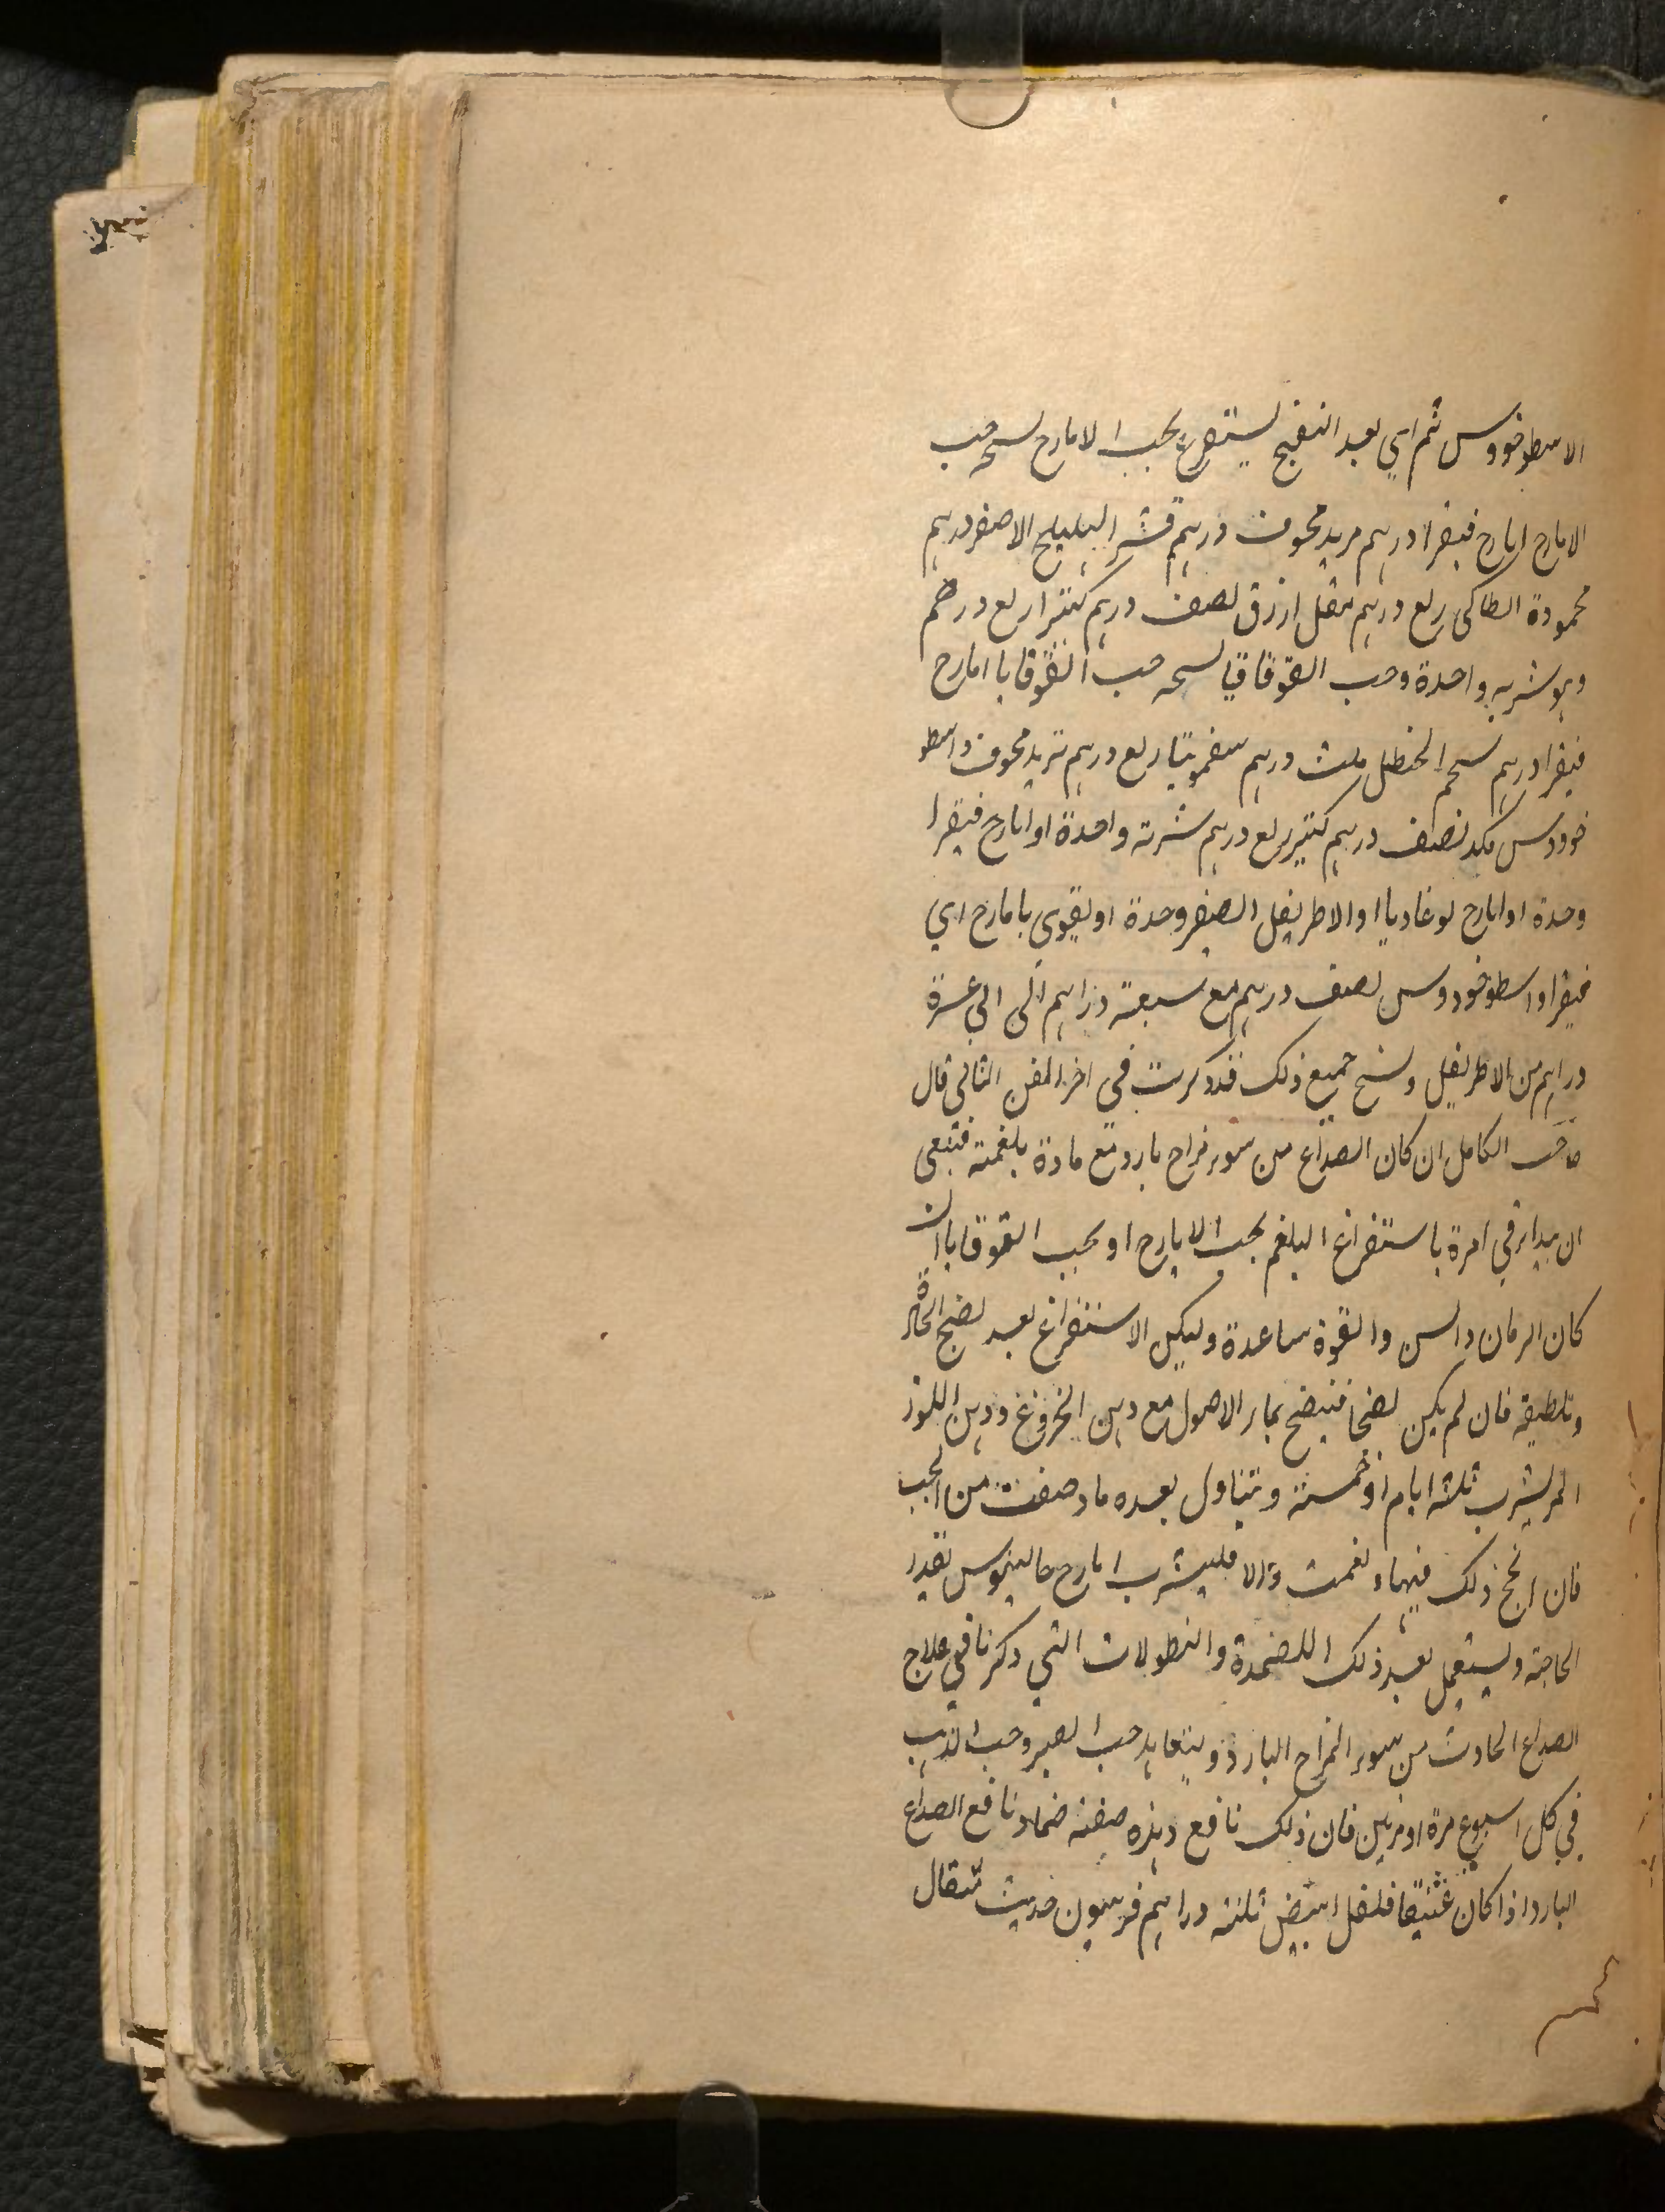 الاسطوخودوس ثم اي بعد النضج يستفرغ بحب الايارح نسخه حب
الايارح ايارح فيقرا درهم تربد مجوف درهم قشر الهليلج الاصفر درهم
محمودة انطاكى ربع درهم مقل ازرق نصف درهم كثيرا ربع درهم
وهو شربه واحدة وحب القوقايا نسخه حب القوقايا ايارح
فيقرا درهم شحم الحنظل ثلث درهم سقمونيا ربع درهم تربد مجوف واسطو
خودوس مكد نصف درهم كثيرا ربع درهم شربة واحدة او ايارح فيقرا
وحدة او ايارح لوغاديا او الاطريفل الصغير وحدة او يقوى بايارح اي
فيقرا واسطوخودوس نصف درهم مع سبعة دراهم الى الي عشرة
دراهم من الاطريفل ونسخ جميع ذلك قد ذكرت في اخر الفن الثاني قال
صاحب الكامل ان كان الصداع من سوء مزاج بارد مع مادة بلغمية فينبغى
ان يبدا في امرة باستفراغ البلغم بحب الايارح او بحب القوقايا ان
كان الزمان والسن والقوة مساعدة وليكن الاستفراغ بعد نضج المادة
وتلطيفه فان لم يكن نضجا فينضج بماء الاصول مع دهن الخروع ودهن اللوز
المر يشرب ثلثة ايام او خمسة ويتناول بعده ما وصفت من الحب
فان انجح ذلك فيها ونعمت والا فليشرب ايارح جالينوس بقدر
الحاجة ويستعمل بعد ذلك الاضمدة والنطولات التي ذكرنا في علاج
الصداع الحادث من سوء المزاج البارد ويتعاهد حب الصبر وحب الذهب
في كل اسبوع مرة او مرتين فان ذلك نافع وهذه صفة ضماد نافع الصداع
البارد اذا كان عتيقا فلفل ابيض ثلثة دراهم فربيون حديث مثقال